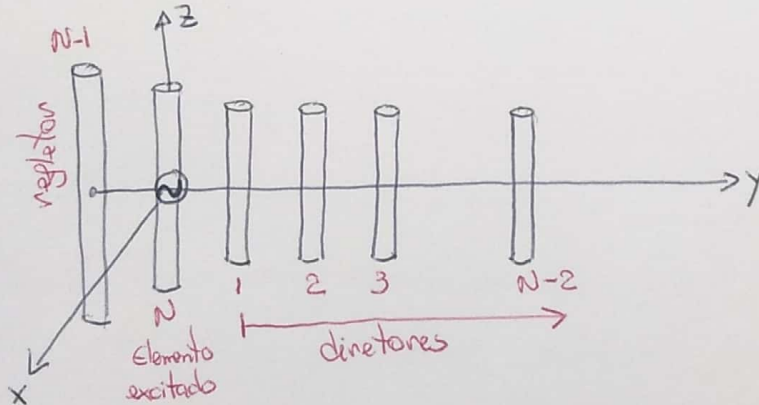 N-1
Z
refletor
Y
1
2
3
N-2
N
Elemento
excitado
diretores
X